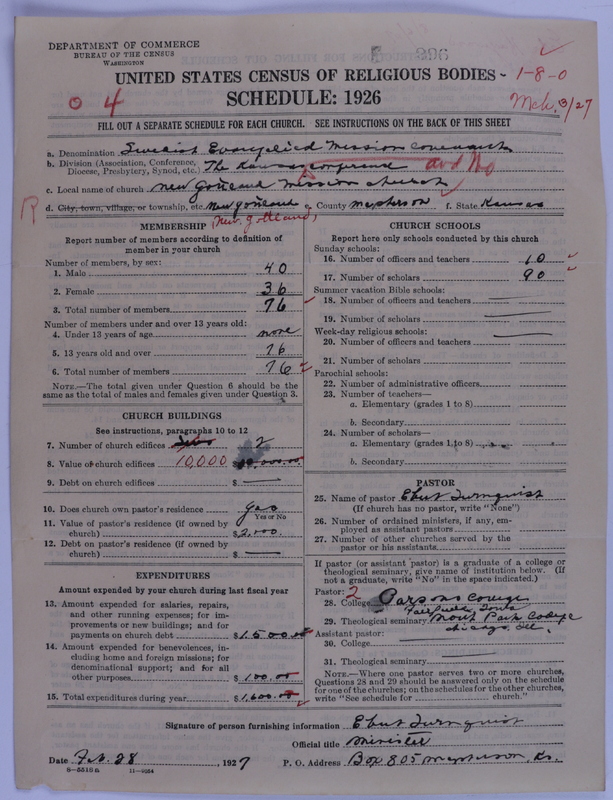 DEPARTMENT OF COMMERCE
BUREAU OF THE CENSUS
WASHINGTON
296
UNITED STATES CENSUS OF RELIGIOUS BODIES
1-8-0
SCHEDULE: 1926
Mch. 3/27
4
FILL OUT A SEPARATE SCHEDULE FOR EACH CHURCH. SEE INSTRUCTIONS ON THE BACK OF THIS SHEET
a. Denomination Swedish Evangelical Mission Covenant
b. Division (Association, Conference, Diocese, Presbytery, Synod, etc.) The Kansas and No
c. Local name of church New Gottland Mission Church
d. City, town, village, or township, etc. New Gottland e. County McPherson f. State Kansas
R
New Gottland,
MEMBERSHIP
Report number of members according to definition of member in your church
Number of members, by sex:
1. Male 40
2. Female 36
3. Total number of members 76
Number of members under and over 13 years old:
4. Under 13 years of age none
5. 13 years old and over 76
6. Total number of members 76
NOTE.—The total given under Question 6 should be the same as the total of males and females given under Question 3.
CHURCH BUILDINGS
See instructions, paragraphs 10 to 12
7. Number of church edifices 2
8. Value of church edifices 10,000 $
9. Debt on church edifices $ —
10. Does church own pastor's residence yes
Yes or No
11. Value of pastor's residence (if owned by church) $ 2,000.
12. Debt on pastor's residence (if owned by church) $ —
EXPENDITURES
Amount expended by your church during last fiscal year
13. Amount expended for salaries, repairs, and other running expenses; for improvements or new buildings; and for payments on church debt $ 1,500.00
14. Amount expended for benevolences, including home and foreign missions; for denominational support; and for all other purposes $ 100.00
15. Total expenditures during year $ 1,600.00
CHURCH SCHOOLS
Report here only schools conducted by this church
Sunday schools:
16. Number of officers and teachers 10
17. Number of scholars 90
Summer vacation Bible schools:
18. Number of officers and teachers —
19. Number of scholars —
Week-day religious schools:
20. Number of officers and teachers —
21. Number of scholars
Parochial schools:
22. Number of administrative officers
23. Number of teachers—
a. Elementary (grades 1 to 8)
b. Secondary
24. Number of scholars—
a. Elementary (grades 1 to 8)
b. Secondary
PASTOR
25. Name of pastor Turnquist
(If church has no pastor, write "None")
26. Number of ordained ministers, if any, employed as assistant pastors
27. Number of other churches served by the pastor or his assistants
If pastor (or assistant pastor) is a graduate of a college or theological seminary, give name of institution below. (If not a graduate, write "No" in the space indicated.)
Pastor: 2
28. College Parsons College
Fairfield Iowa
29. Theological seminary North Park College
Chicago, Ill.
Assistant pastor:
30. College
31. Theological seminary
NOTE.—Where one pastor serves two or more churches, Questions 28 and 29 should be answered only on the schedule for one of the churches; on the schedules for the other churches, write "See schedule for church."
Signature of person furnishing information Turnquist
Official title Minister
Date Feb. 28, 1927 P. O. Address Box 805 McPherson, Ks.
8-5518a 11-9064